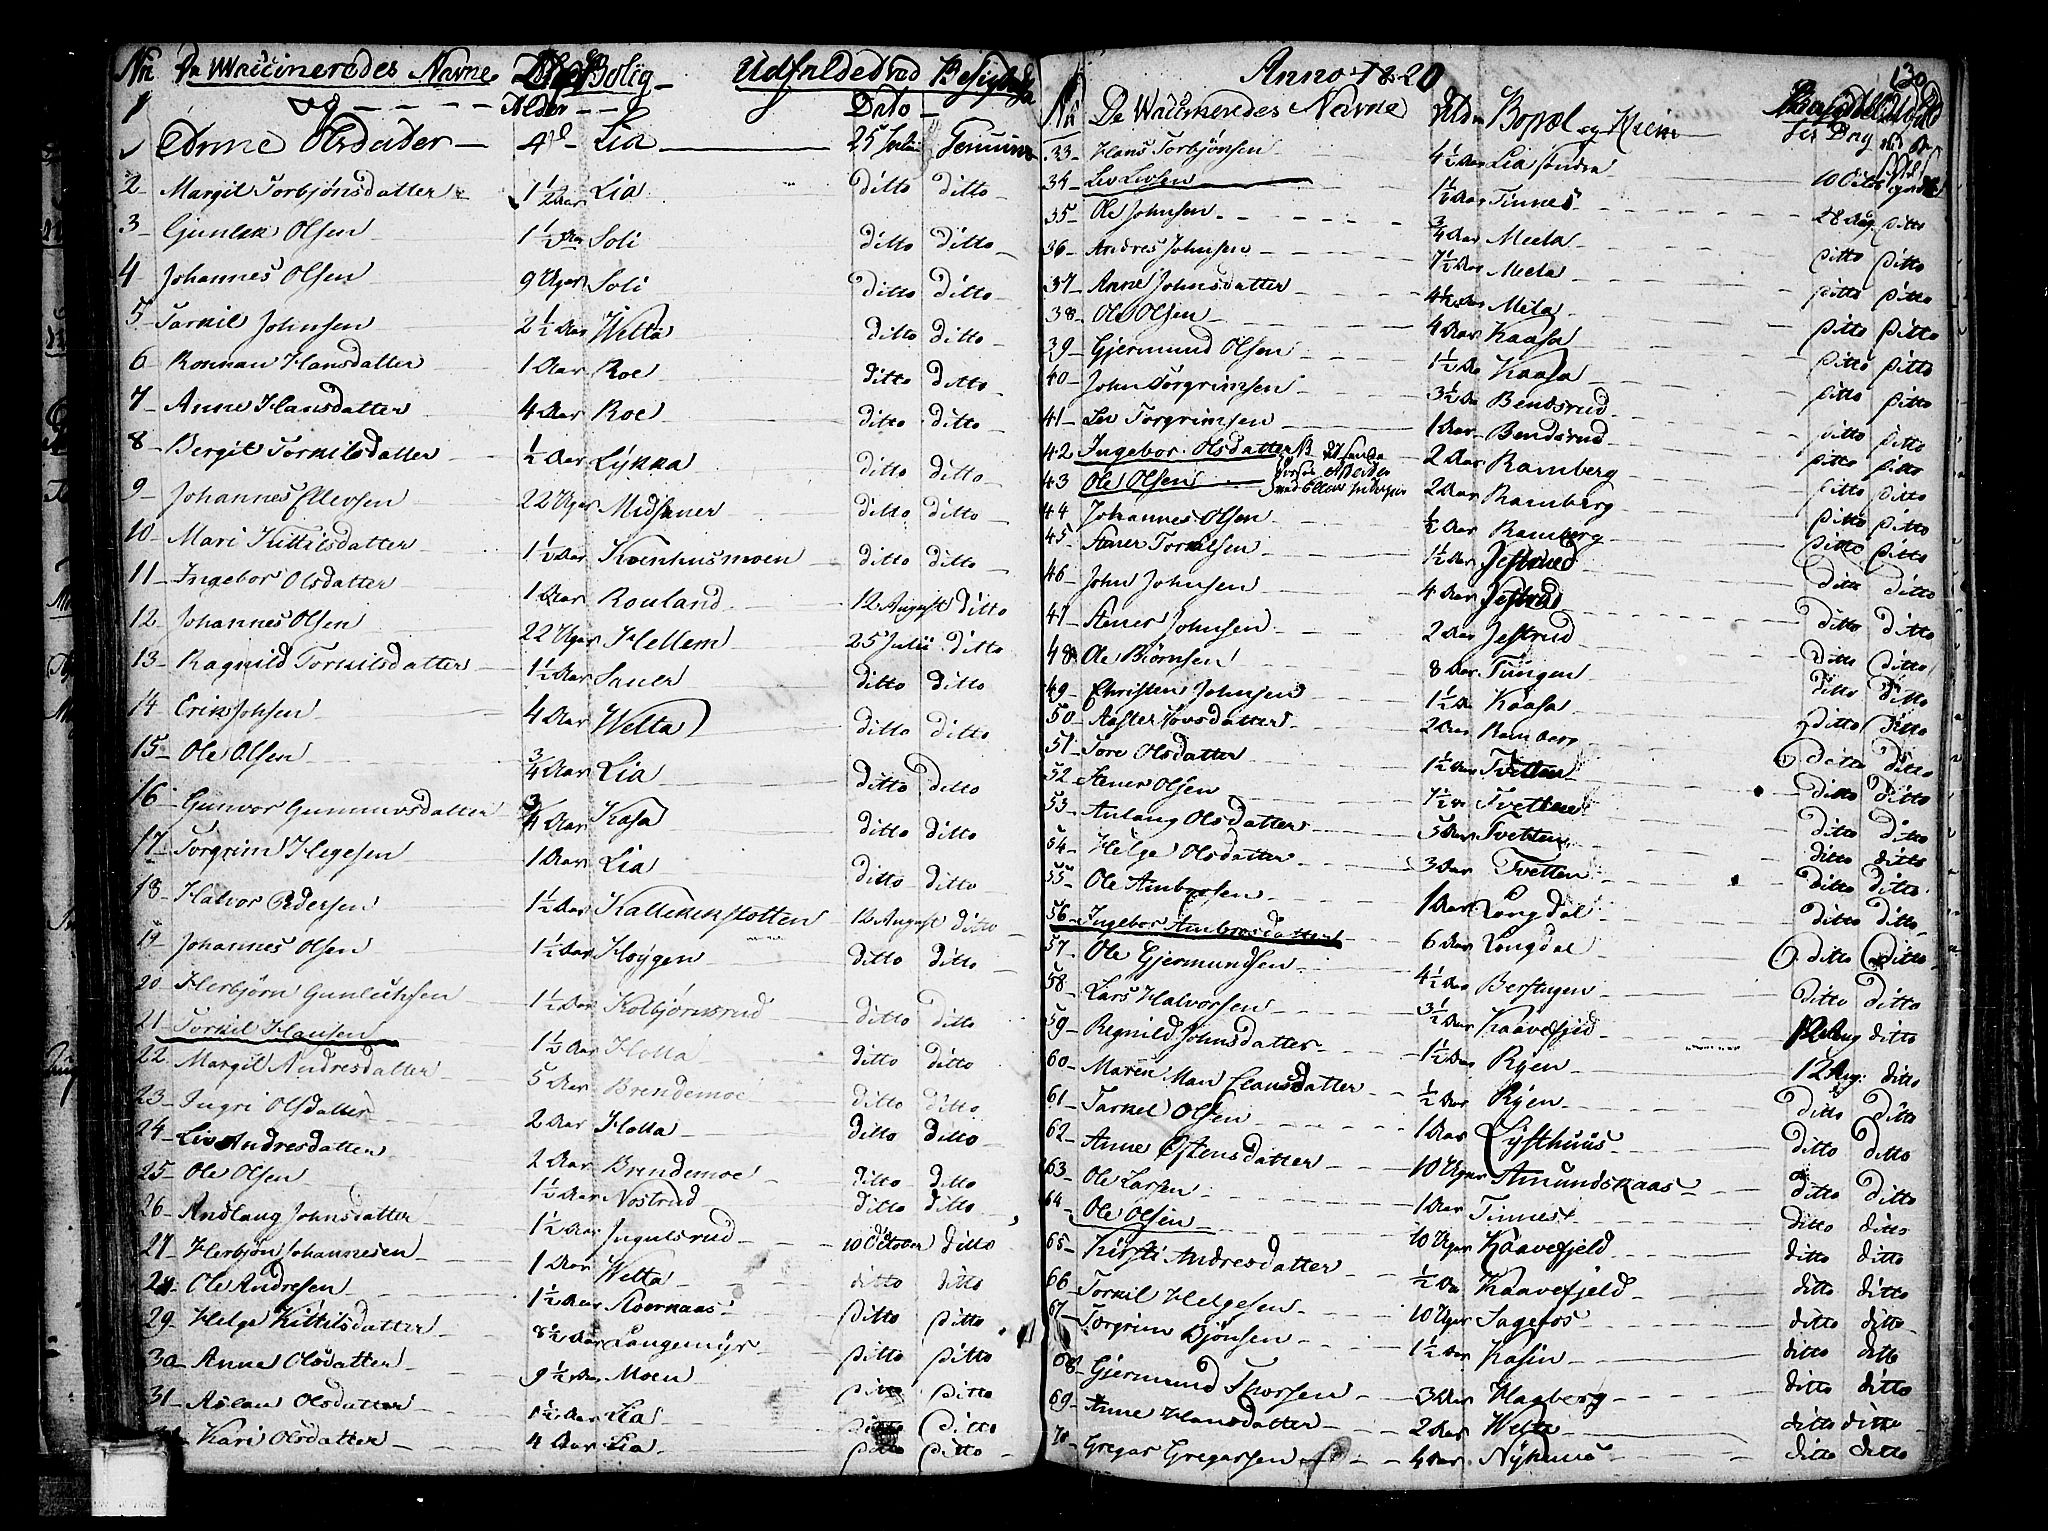 No De Waccineredes Navne Bolig Udfaldet ved Besigtelse
Alder Dato
1 Anne Olsdater 4 Lia 25 Julii Genuine
2 Margit Torbjønsdatter 1½ Aar Lia ditto ditto
3 Gunlek Olsen 1½ Aar Soli ditto ditto
4 Johannes Olsen 9 Uger Soli ditto ditto
5 Tarkil Johnsen 2½ Aar Welta ditto ditto
6 Ronnau Hansdatter 1 Aar Roe ditto ditto
7 Anne Hansdatter 4 Aar Roe ditto ditto
8 Bergit Torkilsdatter ½ Aar Lykka ditto ditto
9 Johannes Ellevsen 22 Uger Midsauer ditto ditto
10 Mari Kittilsdatter 1½ Aar ditto ditto
11 Ingebor Olsdatter 1 Aar Rouland 12 August ditto
12 Johannes Olsen 22 Uger Hellem 25 Julii ditto
13 Ragnild Torkilsdatter 1½ Aar Sauer ditto ditto
14 Erik Johsen 4 Aar Welta ditto ditto
15 Ole Olsen ¾ Aar Lia ditto ditto
16 Gunvor Gunnuvsdatter ¾ Aar Kasa ditto ditto
17 Torgrim Hegesen 1 Aar Lia ditto ditto
18 Halvor Pedersen 1½ Aar 12 August ditto
19 Johannes Olsen 1½ Aar Høygen ditto ditto
20 Herbjørn Gunleiksen 1½ Aar Kolbjørnsrud ditto ditto
21 Torkil Hansen 1½ Aar Holta ditto ditto
22 Margit Andresdatter 5 Aar Brendemoe ditto ditto
23 Ingri Olsdatter 2 Aar Holta ditto ditto
24 Liv Andresdatter 2 Aar Brendemoe ditto ditto
25 Ole Olsen 1½ Aar Nostrud ditto ditto
26 Andlaug Johnsdatter 1½ Aar Ingulsrud 10 October ditto
27 Herbjøn Johannesen 1 Aar Welta ditto ditto
28 Ole Andresen 1½ Aar ditto ditto
29 Helge Kittilsdatter 8½ Aar Langemyr ditto ditto
30 Anne Olsdatter 9½ Aar Moen ditto ditto
31 Aslau Olsdatter 1½ Aar Lia ditto ditto
Kari Olsdatter 4 Aar Lia ditto ditto
Anno 1820 130
No De Waccineredes Navne Alder Bopæl og Hiem
33 Hans Torbjønsen 4½ Aar Lia 10 Octb
34 Lev Levsen 1½ Aar Tinnes 28 Aug ditto
35 Ole Johnsen ¾ Aar Meela ditto ditto
36 Andres Johnsen 7½ Aar Meela ditto ditto
37 Anne Johnsdatter 4½ Aar Mela ditto ditto
38 Ole Olsen 4 Aar Kaasa ditto ditto
39 Gjermund Olsen 1½ Aar Kaasa ditto ditto
40 John Torgrimsen 3½ Aar Bendsrud ditto ditto
41 Lev Torgrimsen 1 Aar Bendsrud ditto ditto
42 Ingebor Olsdatter NB 2 Aar Ramberg ditto ditto
43 Ole Olsen 2 Aar Ramberg ditto ditto
44 Johannes Olsen ½ Aar Ramberg ditto ditto
45 Stener Torkilsen 1½ Aar Jestrud ditto ditto
46 John Johnsen 4 Aar Jestrud ditto ditto
47 Stener Johnsen 2 Aar Jestrud ditto ditto
48 Ole Biørnsen 8 Aar Tungen ditto ditto
49 Christen Johnsen 1½ Aar Kaasa ditto ditto
50 Aaste Hovsdatter 2 Aar Ramberg ditto ditto
51 Tore Olsdatter 1½ Aar Tvetten ditto ditto
52 Stener Olsen 7½ Aar Tvetten ditto ditto
53 Anlaug Olsdatter 5 Aar Tvetten ditto ditto
54 Helge Olsdatter 3 Aar Tvetten ditto ditto
55 Ole Ambrosen 1 Aar Longdal ditto ditto
56 Ingebor Ambrosdatter 6 Aar Longdal ditto ditto
57 Ole Gjermundsen 4½ Aar Berstugen ditto ditto
58 Lars Halvorsen 3½ Aar Kaavefjeld 12 Aug ditto
59 Regnild Johnsdatter 1½ Aar Ryen 12 Aug ditto
60 Maren Mari Clausdatter ½ Aar Ryen ditto ditto
61 Tarkel Olsen 1 Aar Lysthuus ditto ditto
62 Anne Østensdatter 10 Uger Amundskaas ditto ditto
63 Ole Larsen 1 Aar Tinnest ditto ditto
64 Ole Olsen 10 Uger Kaavefjeld ditto ditto
65 Kirsti Andresdatter ½ Aar Kaavefjeld ditto ditto
66 Torkil Helgesen 10 Uger Sagefos ditto ditto
67 Torgrim Bjønsen 1½ Aar Kasin ditto ditto
68 Gjermund Thorsen 3 Aar Haaberg ditto ditto
69 Anne Hansdatter 2 Aar Welta ditto ditto
70 Gregar Gregarsen 4 Aar Nyhuus ditto ditto